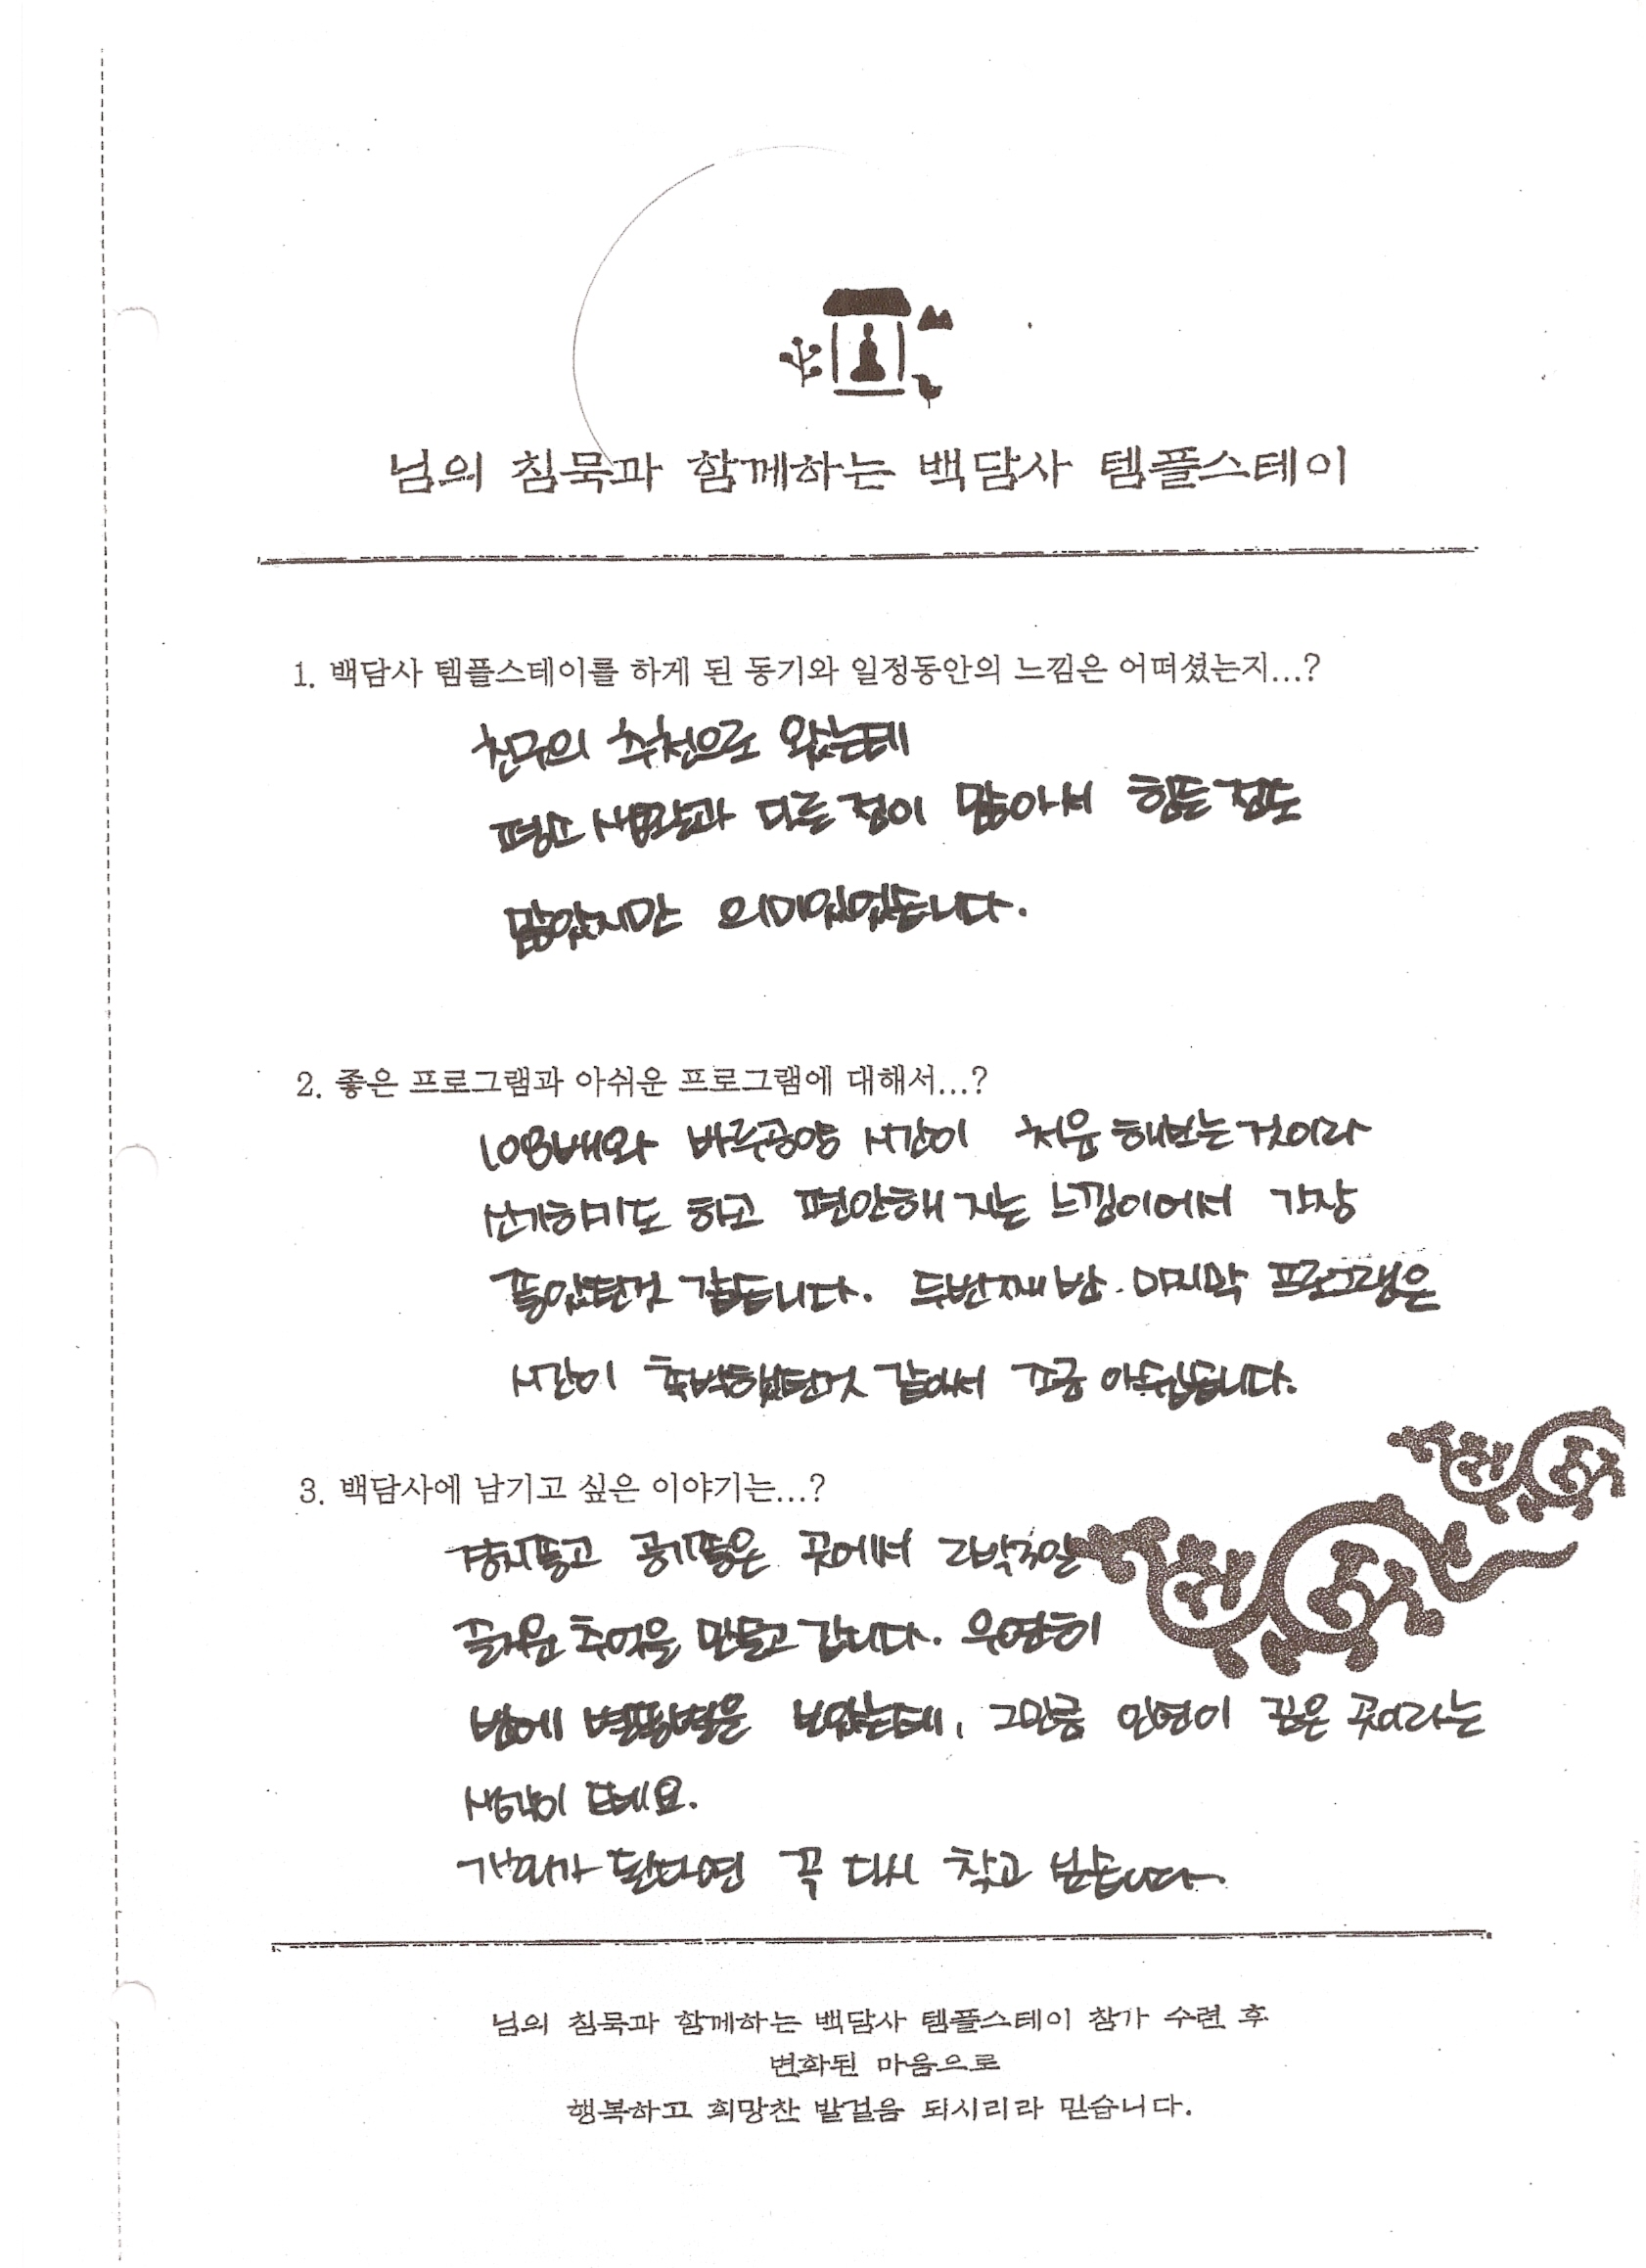 님의 침묵과 함께하는 백담사 템플스테이
1. 백담사 템플스테이를 하게 된 동기와 일정동안의 느낌은 어떠셨는지...?
친구의 추천으로 왔는데
평소 생활과 다른 점이 많아서 힘든 점도
많았지만 의미있었습니다.
2. 좋은 프로그램과 아쉬운 프로그램에 대해서...?
108배와 바루공양 시간이 처음 해보는 것이라
신기하기도 하고 편안해 지는 느낌이어서 가장
좋았던것 같습니다. 두번째 밤. 마지막 프로그램은
시간이 촉박했던것 같아서 조금 아쉽습니다.
3. 백담사에 남기고 싶은 이야기는...?
경치좋고 공기좋은 곳에서 2박3일
즐거운 추억을 만들고 갑니다. 우연히
밤에 별똥별을 보았는데, 그만큼 인연이 깊은 곳이라는
생각이 드네요.
기회가 된다면 꼭 다시 찾고 싶습니다.
님의 침묵과 함께하는 백담사 템플스테이 참가 수련 후
변화된 마음으로
행복하고 희망찬 발걸음 되시리라 믿습니다.